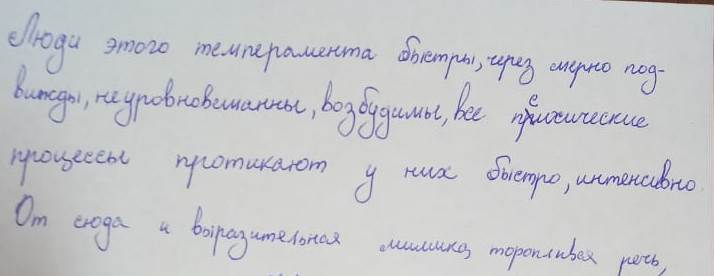 Люди этого темперамента быстры, через мерно под-
вижды, неуровновеманны, возбудимы, все психические
процессы протикают у них быстро, интенсивно.
От сюда и выразительная мимика, торопливая речь,